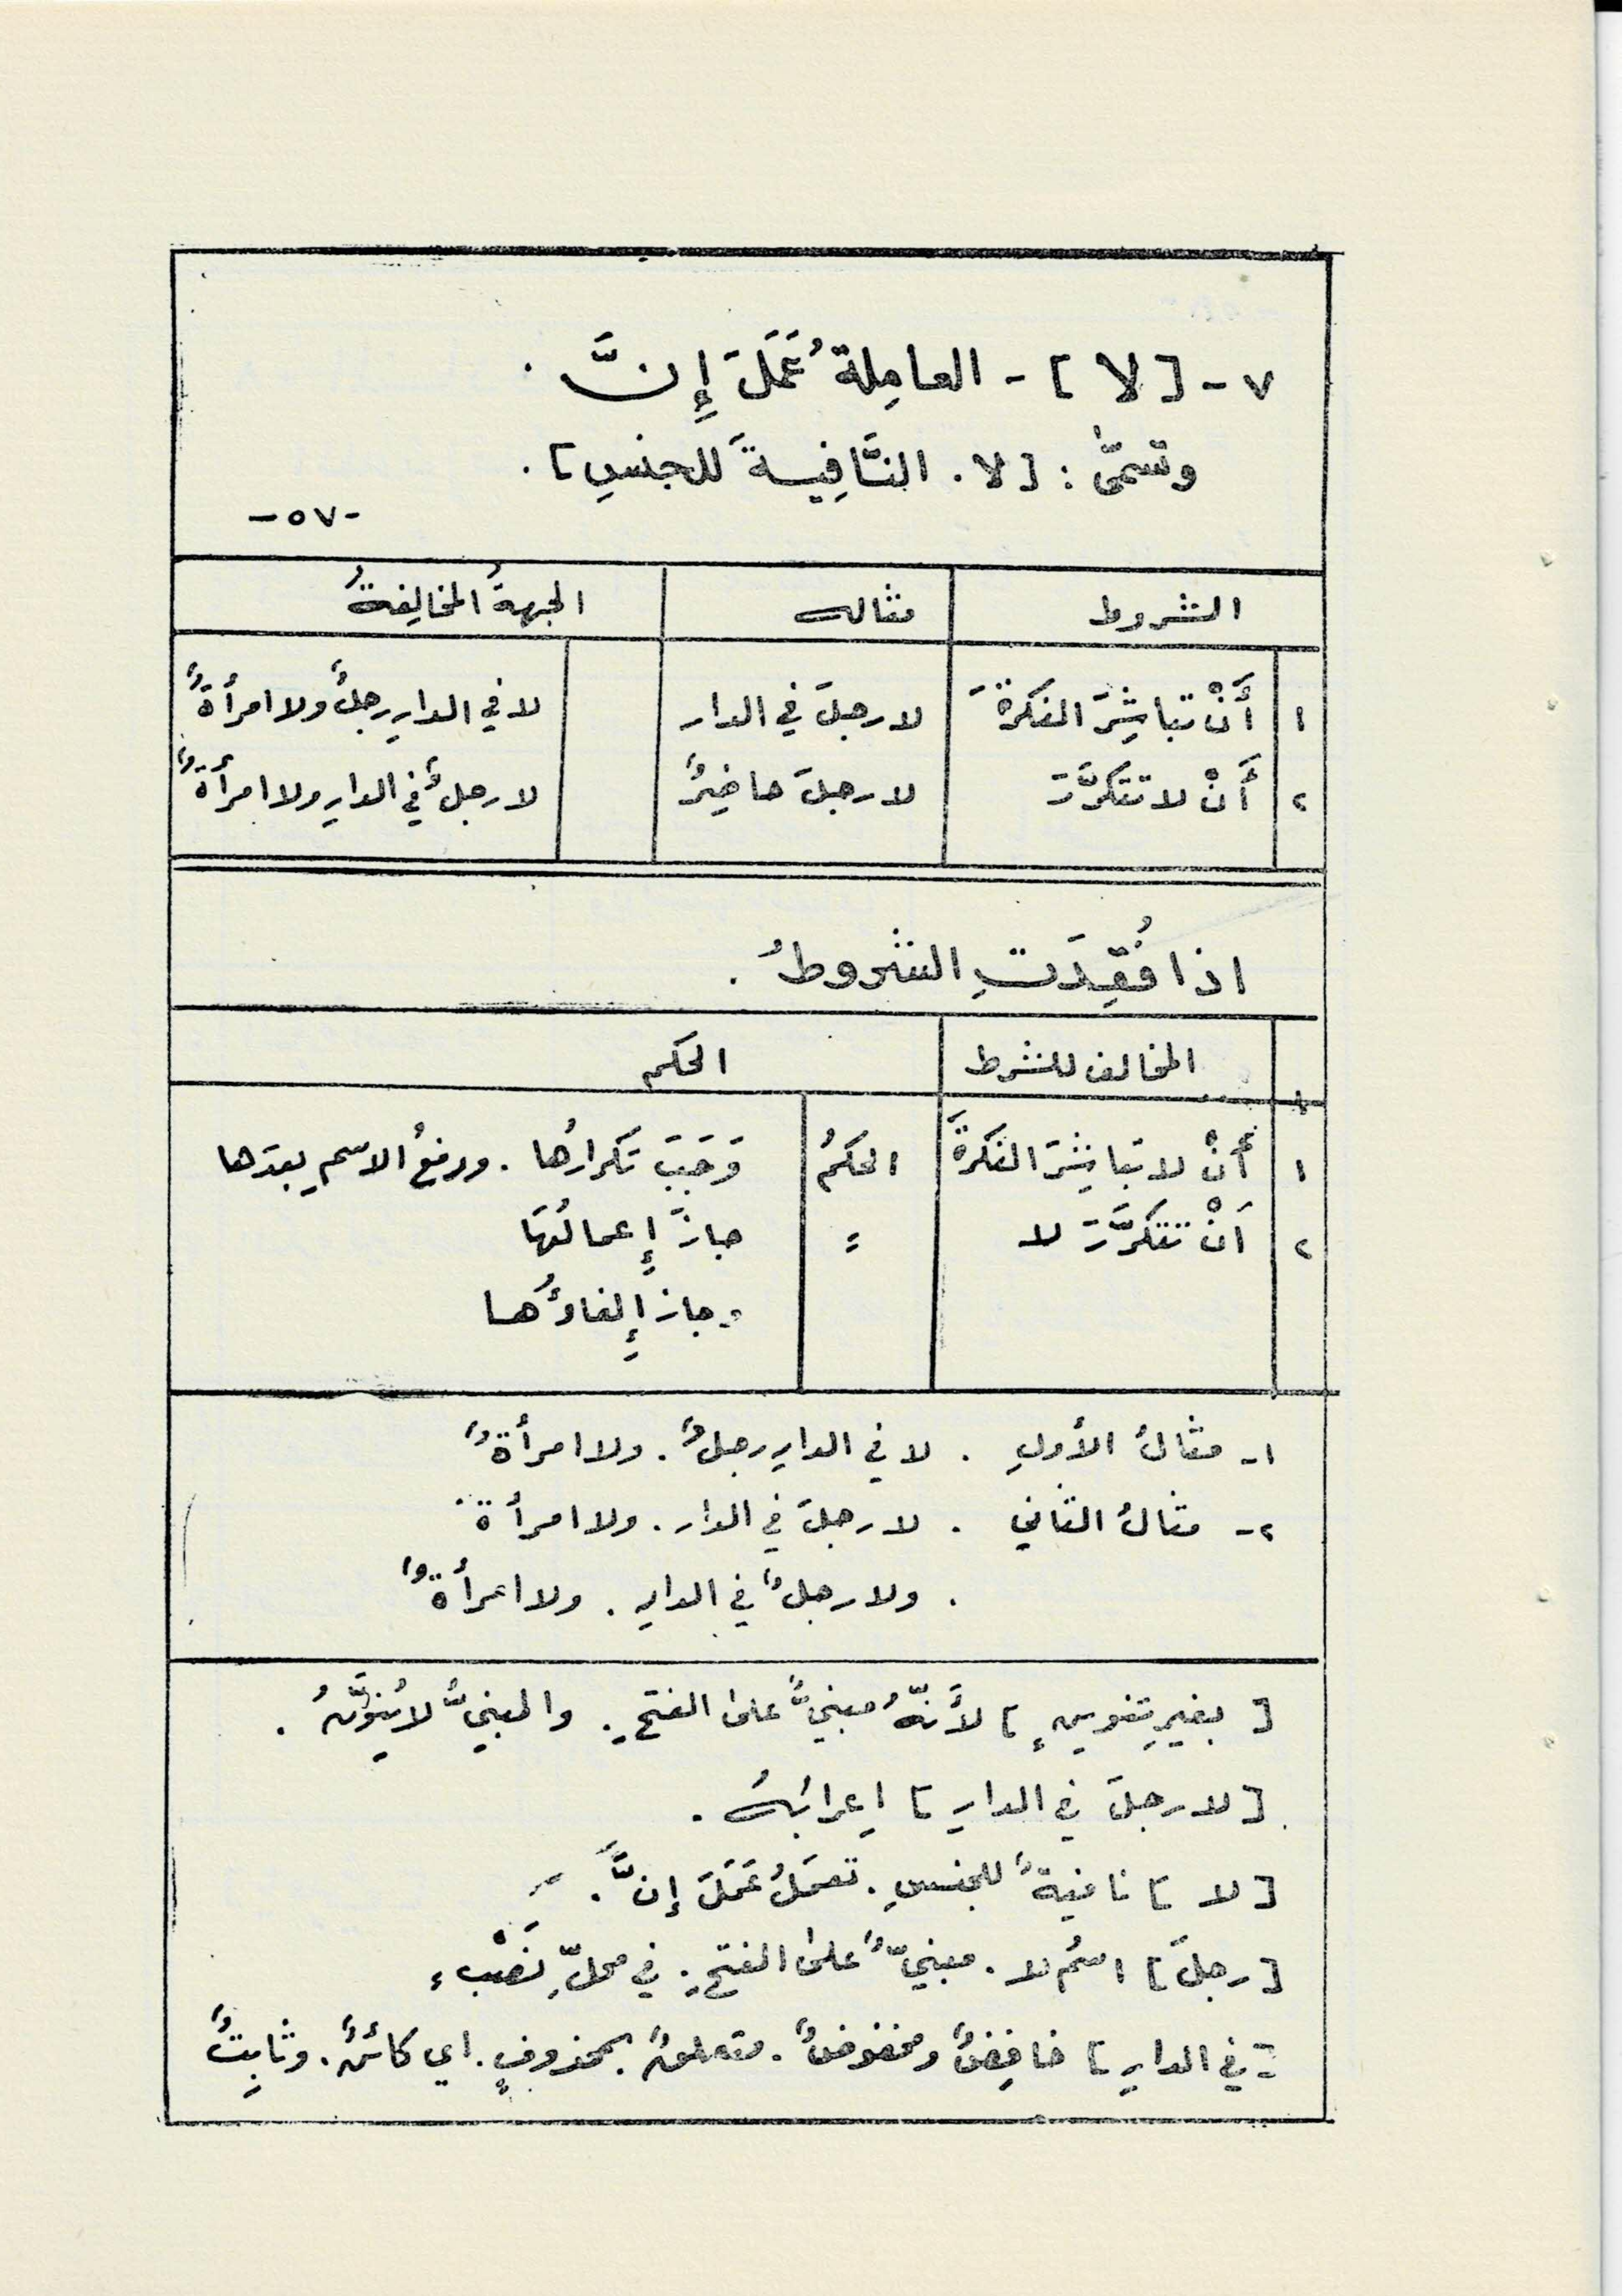 ٧ - [ لا ] - العامِلةُ عَمَلَ إِنَّ .
وتسمىّٰ : [ لا . النَّافِيةَ للجنسِ ] .
- ٥٧ -
الشروط مثاله الجهةُ المخالِفةُ
١ أَنْ تباشِرَ النكرةَ لا رجلَ في الدار لا في الدارِ رجلٌ ولا امرأةٌ
٢ أَنْ لا تتكرَّرَ لا رجلَ حاضِرٌ لا رجلٌ في الدارِ ولا امرأةٌ
اذا فُقِدَتِ الشروطُ .
المخالف للشرط الحكم
١ أَنْ لا تباشِرَ النكرةَ الحكمُ وَجَبَ تكرارُها . ورفعُ الاسمِ بعدَها
٢ اَنْ تتكرَّرَ لا = جازَ إِعمالُهَا
وجاز إِلغاؤُها
١- مثالُ الأولِ . لا في الدارِ رجلٌ . ولا امرأةٌ
٢- مثالُ الثاني . لا رجلَ في الدار . ولا امرأةَ
. ولا رجلٌ في الدارِ . ولا امرأةٌ
[ بغيرِ تنوينٍ ] لأَنّهُ مبنيٌّ على الفتحِ . والمبنيُّ لا يُنوَّنُ .
[ لا رجلَ في الدارِ ] اِعرابُهُ .
[ لا ] نافيةٌ للجنسِ . تعمَلُ عَمَلَ إِنَّ .
[ رجلَ ] اسمُ لا . مبنيٌّ على الفتحِ . في محلِّ نَصْبٍ
[ في الدارِ ] خافِضٌ ومخفوضٌ . متعلقٌ بمحذوفٍ . اي كائنٌ . وثابِتٌ